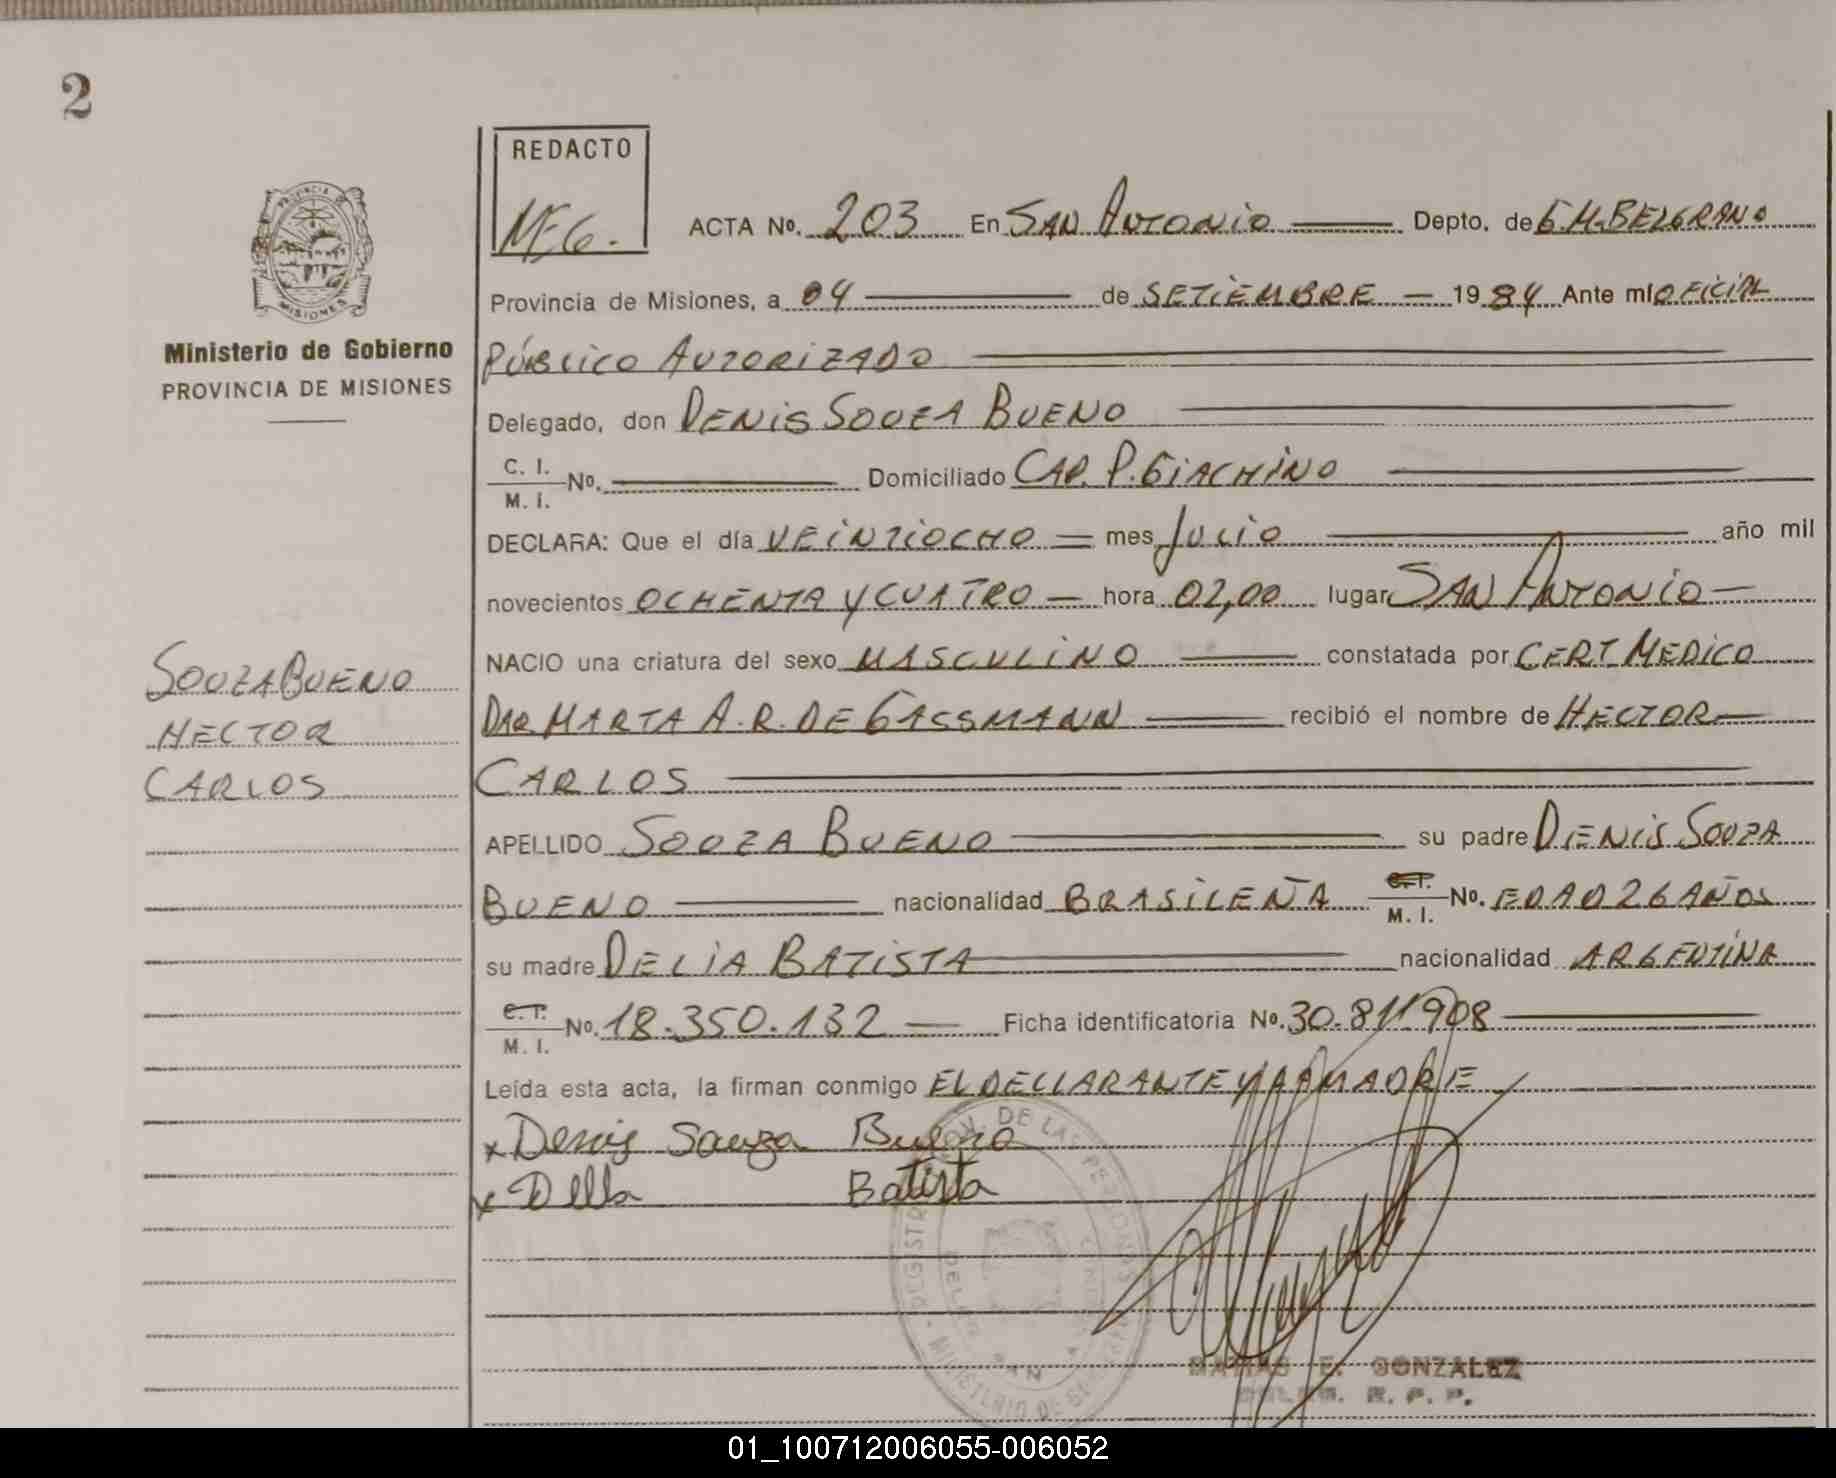 2
REDACTO
MEG.
ACTA No. 203 En SAN ANTONIO Depto. de G.M. BELGRANO
Provincia de Misiones, a 04 de SETIEMBRE 1984 Ante mi OFICIAL
PROVINCIA DE
MISIONES
Ministerio de Gobierno
PROVINCIA DE MISIONES
PÚBLICO AUTORIZADO
Delegado, don DENIS SOUZA BUENO
C. I.
M. I. No. Domiciliado CAP. P. GIACHINO
DECLARA: Que el día VEINTIOCHO mes JULIO año mil
novecientos OCHENTA Y CUATRO hora 02,00 lugar SAN ANTONIO
NACIO una criatura del sexo MASCULINO constatada por CERT. MEDICO
DRA MARTA A. R. DE GASSMANN recibió el nombre de HECTOR
CARLOS
SOUZA BUENO
HECTOR
CARLOS
APELLIDO SOUZA BUENO su padre DENIS SOUZA
BUENO nacionalidad BRASILEÑA C. I. M. I. No. EDAD 26 AÑOS
su madre DELIA BATISTA nacionalidad ARGENTINA
C. I. M. I. No. 18.350.132 Ficha identificatoria No. 30.811908
Leída esta acta, la firman conmigo EL DECLARANTE Y LA MADRE
x Denis Souza Bueno
x Delia Batista
MATIAS E. GONZALEZ
R. P. P.
01_100712006055-006052